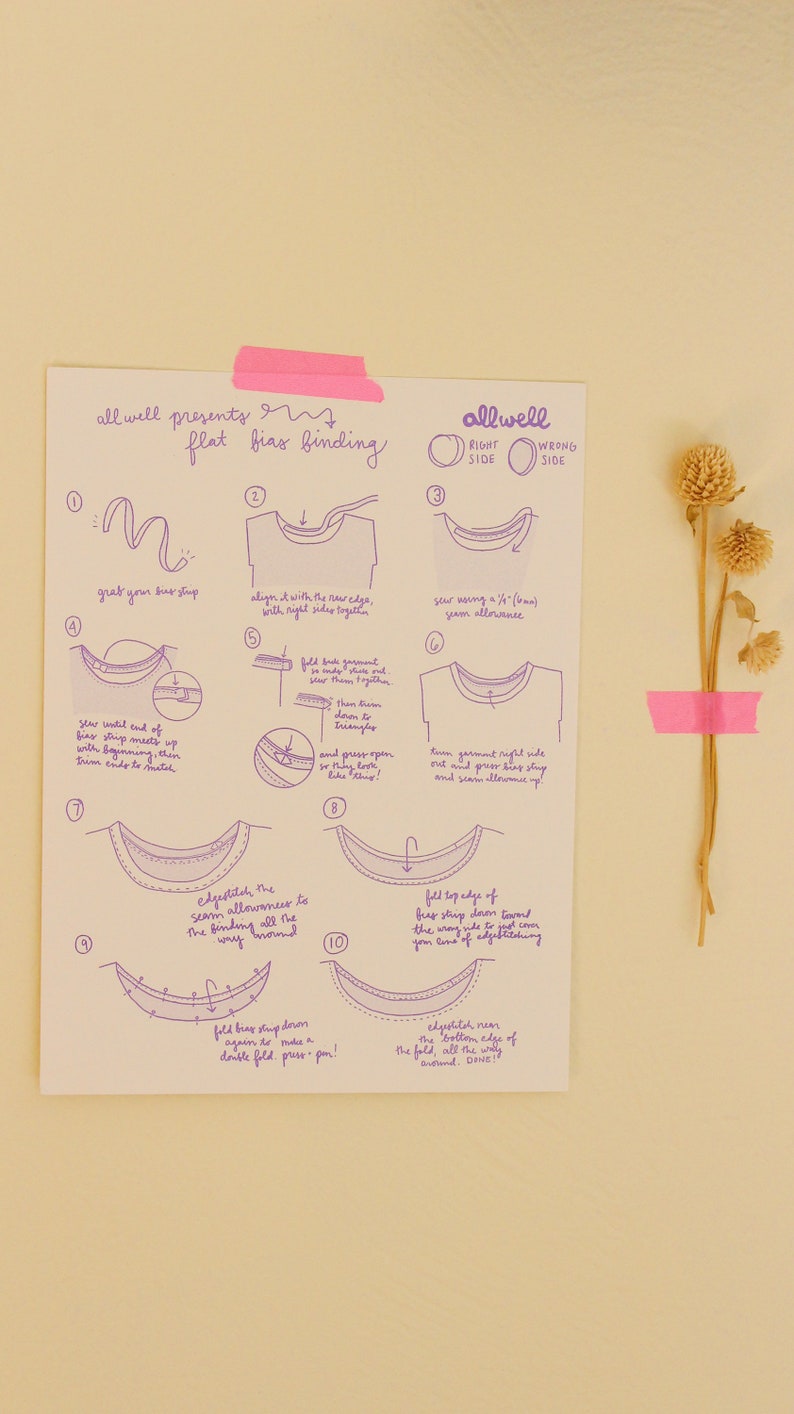 allwell presents
flat bias binding
allwell
RIGHT
SIDE
WRONG
SIDE
1
grab your bias strip
2
align it with the raw edge,
with right sides together
3
sew using a 1/4" (6mm)
seam allowance
4
sew until end of
bias strip meets up
with beginning, then
trim ends to match
5
fold back garment
so ends stick out.
sew them together.
then trim
down to
triangles
and press open
so they look
like this!
6
turn garment right side
out and press bias strip
and seam allowance up!
7
edgestitch the
seam allowances to
the binding all the
way around
8
fold top edge of
bias strip down toward
the wrong side to just cover
your line of edgestitching
9
fold bias strip down
again to make a
double fold. press + pin!
10
edgestitch near
the bottom edge of
the fold, all the way
around. DONE!